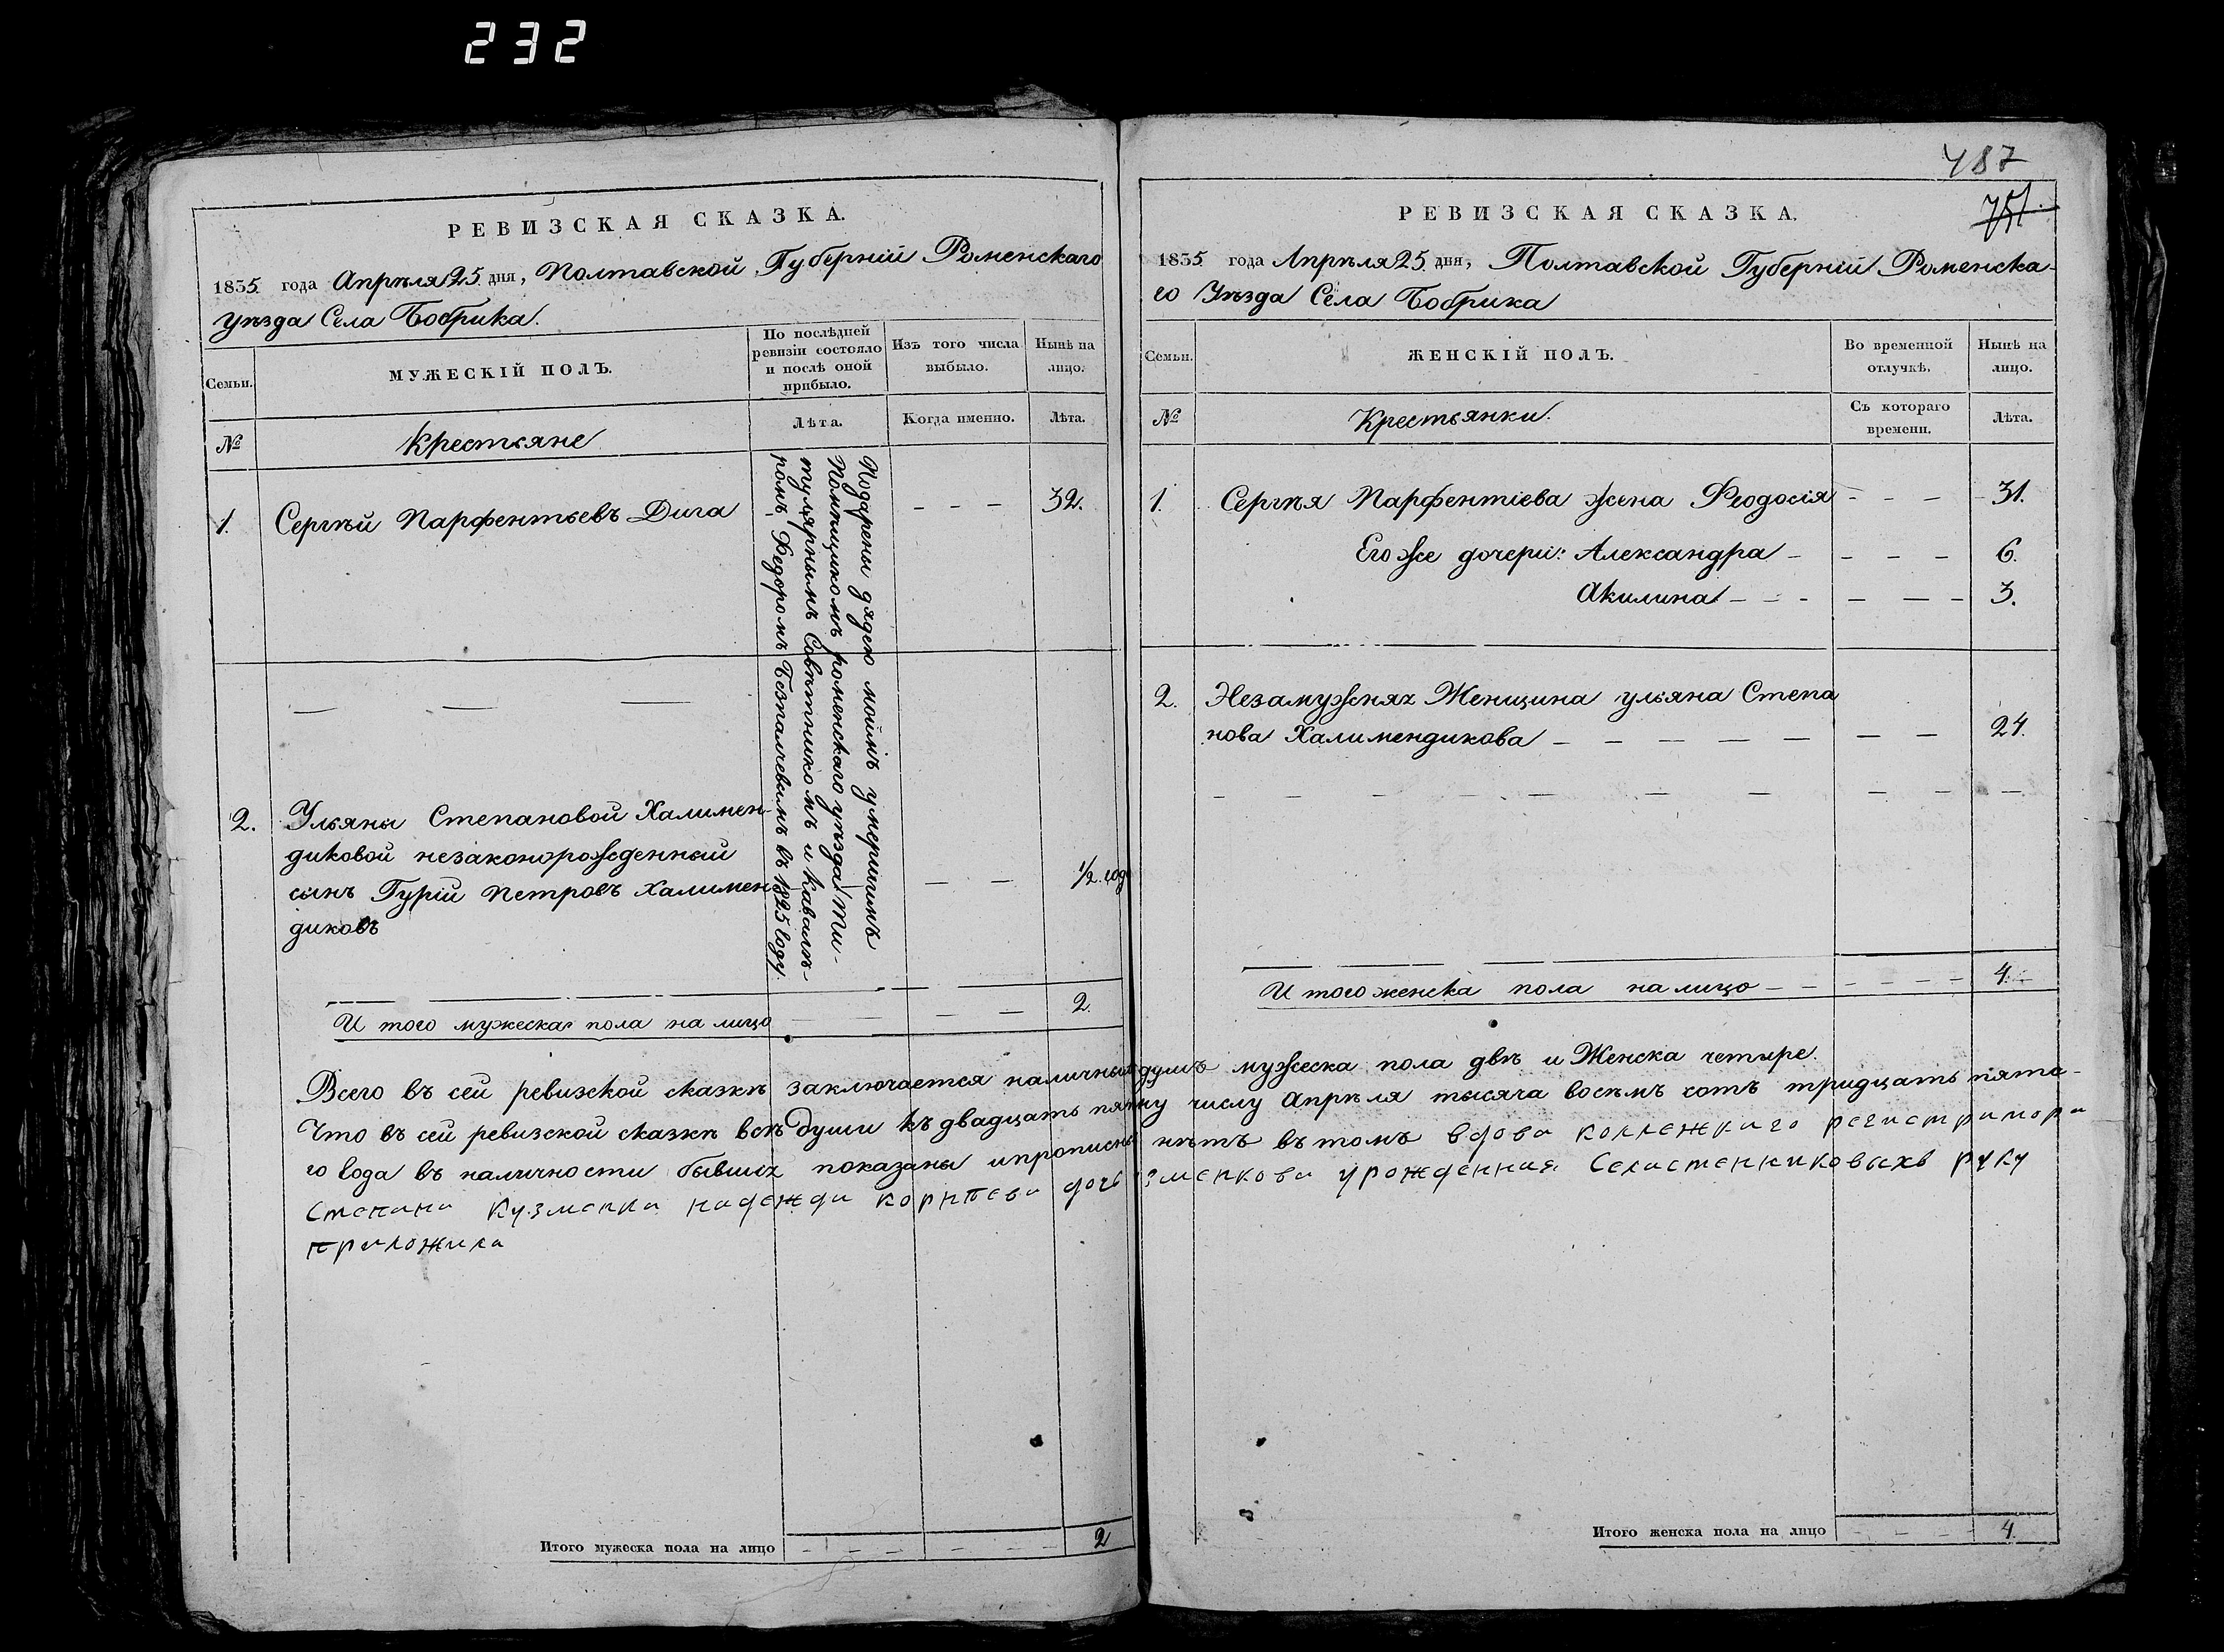 232
РЕВИЗСКАЯ СКАЗКА.
1835 года Апрѣля 25 дня, Полтавской Губерніи Роменскаго
уѣзда Села Бобрика.
Семьи.
МУЖЕСКІЙ ПОЛЪ.
По послѣдней
ревизіи состояло
и послѣ оной
прибыло.
Изъ того числа
выбыло.
Нынѣ на
лицо.
№
Крестьяне
Лѣта.
Когда именно.
Лѣта.
1. Сергѣй Парфентьевъ Дига — — — 32.
Подарены дядею моимъ умершимъ
Помѣщикомъ роменскаго уѣзда Ти-
тулярнымъ Совѣтникомъ и Кавале-
ромъ Федоромъ Безпалчевымъ въ 1825 году
— — —
2. Ульяны Степановой Халимен-
диковой незаконорожденный
сынъ Гурій Петровъ Халимен — — 1/2 год
диковъ
И того мужеска пола на лицо — — — — 2.
Итого мужеска пола на лицо — — — — — — 2
487
751
РЕВИЗСКАЯ СКАЗКА.
1835 года Апрѣля 25 дня, Полтавской Губерніи Роменска-
го Уѣзда Села Бобрика
Семьи.
ЖЕНСКІЙ ПОЛЪ.
Во временной
отлучкѣ.
Нынѣ на
лицо.
№
Крестьянки.
Съ котораго
времени.
Лѣта.
1. Сергѣя Парфентіева жена Феодосія — — — 31.
Его же дочери: Александра — — — — 6.
Акилина — — — — — — 3.
2. Незамужняя Женщина ульяна Степа
нова Халимендикова — — — — — — — 24.
И того женска пола на лицо — — — — — — 4.
Всего въ сей ревизской сказкѣ заключается наличныхъ душъ мужеска пола двѣ и Женска четыре.
Что въ сей ревизской сказкѣ всѣ души къ двадцать пятму числу Апрѣля тысяча восемъ сотъ тридцать пята-
го года въ наличности бывшіх показаны и прописных нѣтъ въ томъ вдова коллежкаго регистратора
Степана Кузменка надежда корнѣева дочь Кузменкова урожденная Селастенниковыхъ руку
приложила
Итого женска пола на лицо — — — — 4.